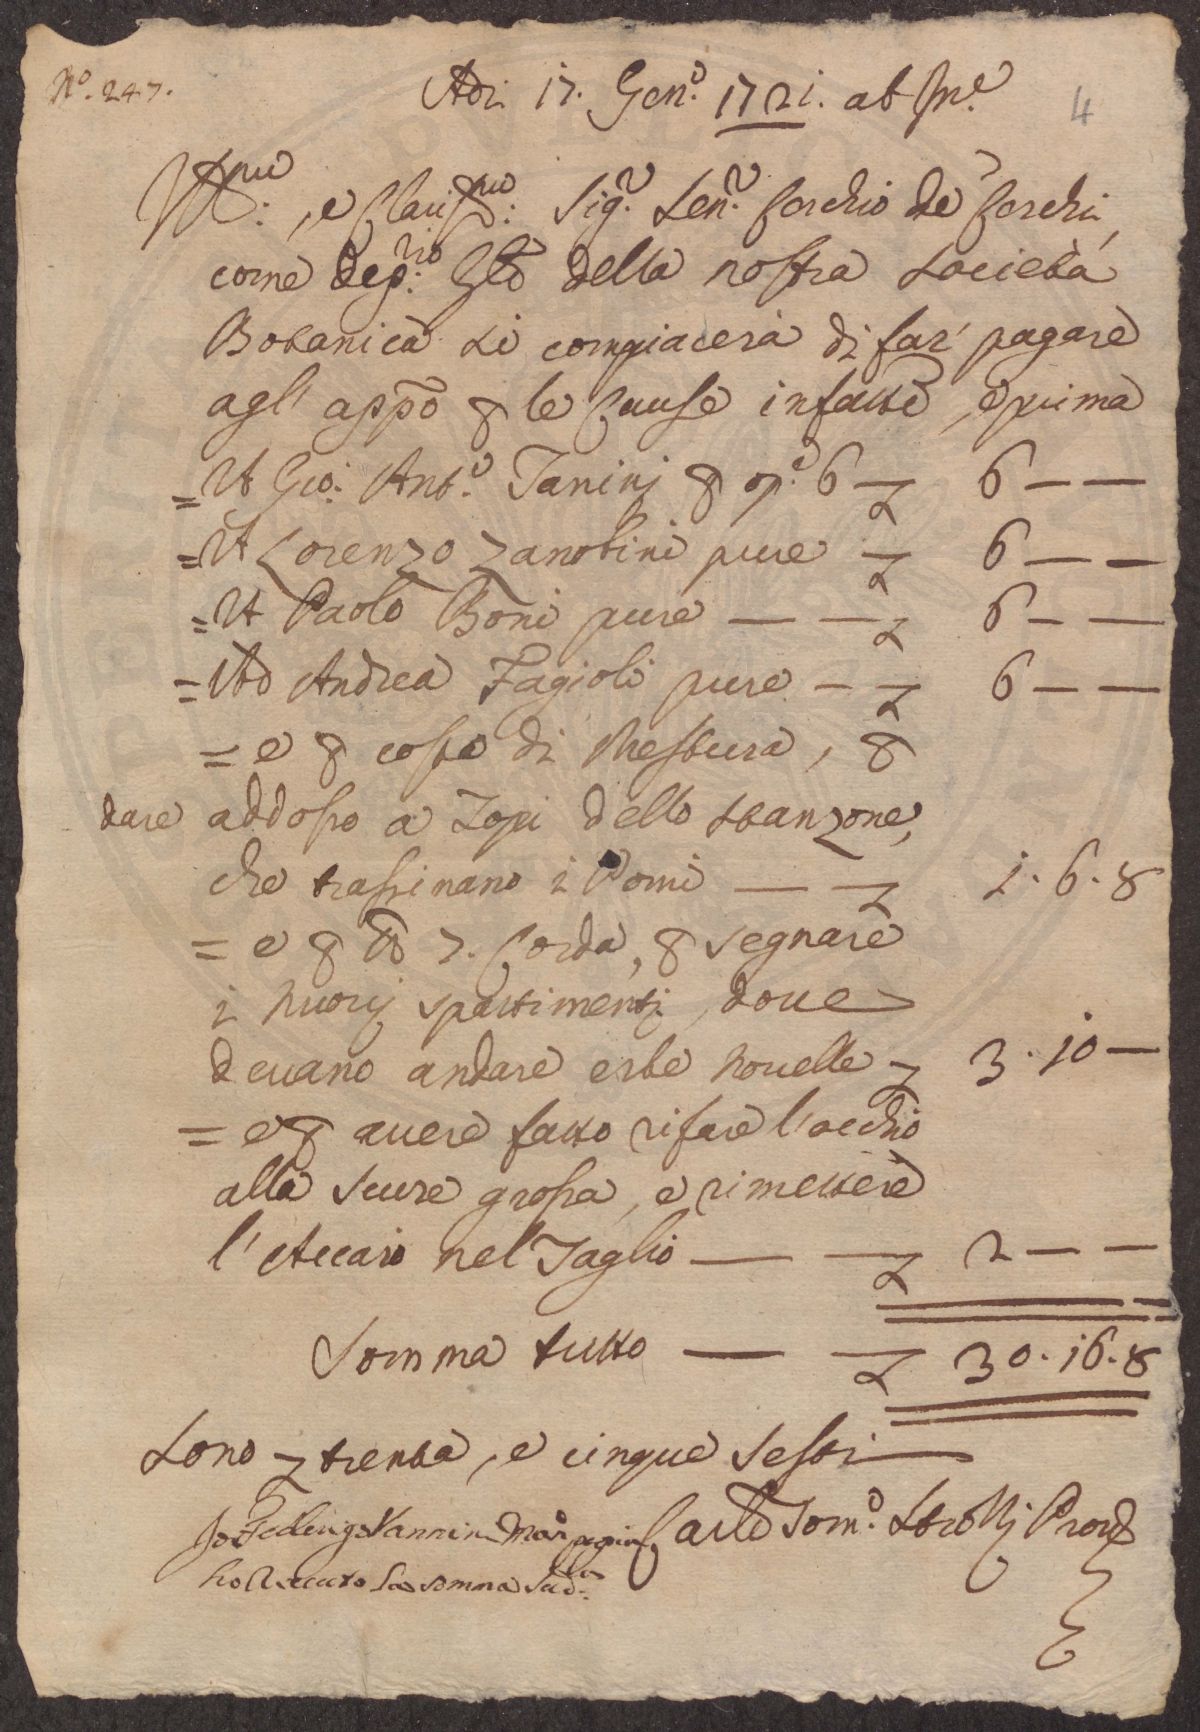 N.º 247.
Adi 17. Gen.º 1721. ab Inc.e
4
Ill.mo, e Clariss.mo Sig.r Sen.r Cerchio de' Cerchi,
come Dep.rio Gle della nostra Società
Botanica si compiacerà di far' pagare
agl' app.o p le cause infatte, e prima
= A Gio: Ant.o Tanini p op.e 6 £ 6 — —
= A Lorenzo Zanobini pure £ 6 — —
= A Paolo Boni pure — — £ 6 — —
= Ad Andrea Fagioli pure — £ 6 — —
= e p costo di Mestura, p
dare addosso a Topi dello stanzone,
che trassinano i Pomi — £ 1. 6. 8
= e p lb 7. Corda, p segnare
i nuovj spartimentj, doue
deuano andare erbe nouelle £ 3. 10 —
= e p auere fatto rifare l'occhio
alla scure grossa, e rimettere
l'Acciaio nel Taglio — £ 2 — —
Somma tutto — £ 30. 16. 8
Sono £ trenta, e cinque sesti
Carlo Tom.o Strozzi Prov.
Io Federigo Vannini
ho riceuto la somma sud.a